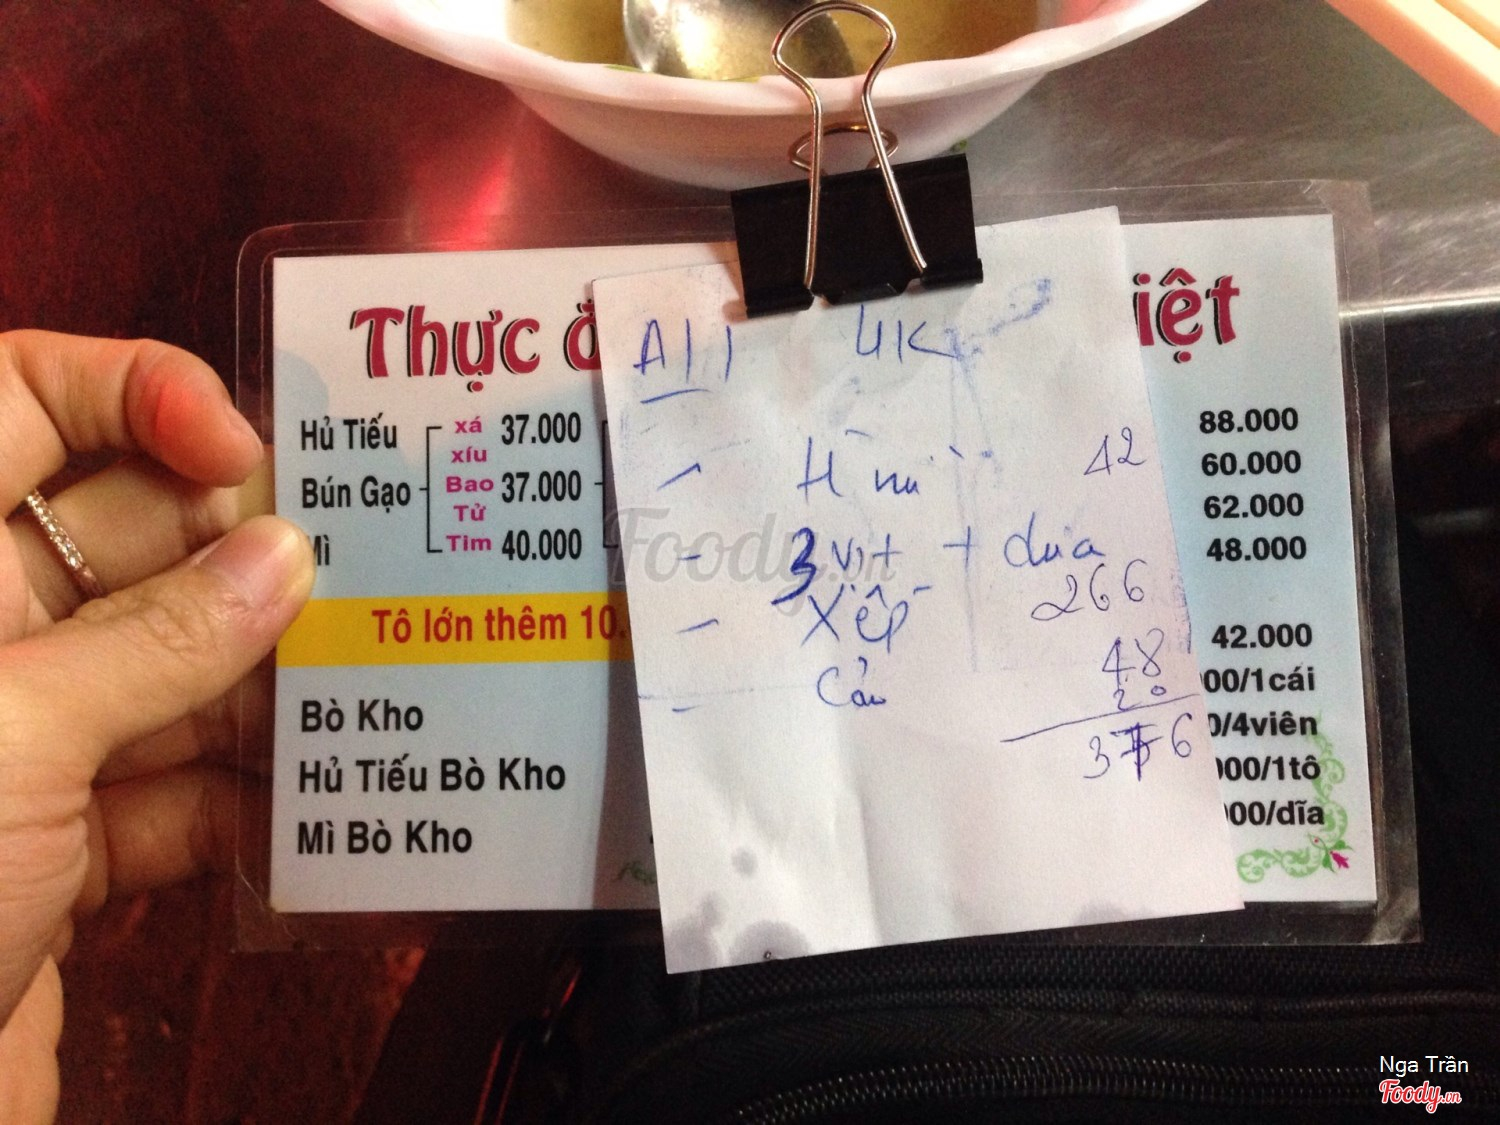 Thực đ
iệt
Hủ Tiếu
Bún Gạo
Mì
xá
xíu
Bao
Tử
Tim
37.000
37.000
40.000
Tô lớn thêm 10.
Bò Kho
Hủ Tiếu Bò Kho
Mì Bò Kho
A11 4K
H 42
3 vịt + dừa
266
Xếp
48
Cải 20
376
88.000
60.000
62.000
48.000
42.000
00/1cái
0/4viên
000/1tô
000/dĩa
Foody.vn
Nga Trần
Foody.vn